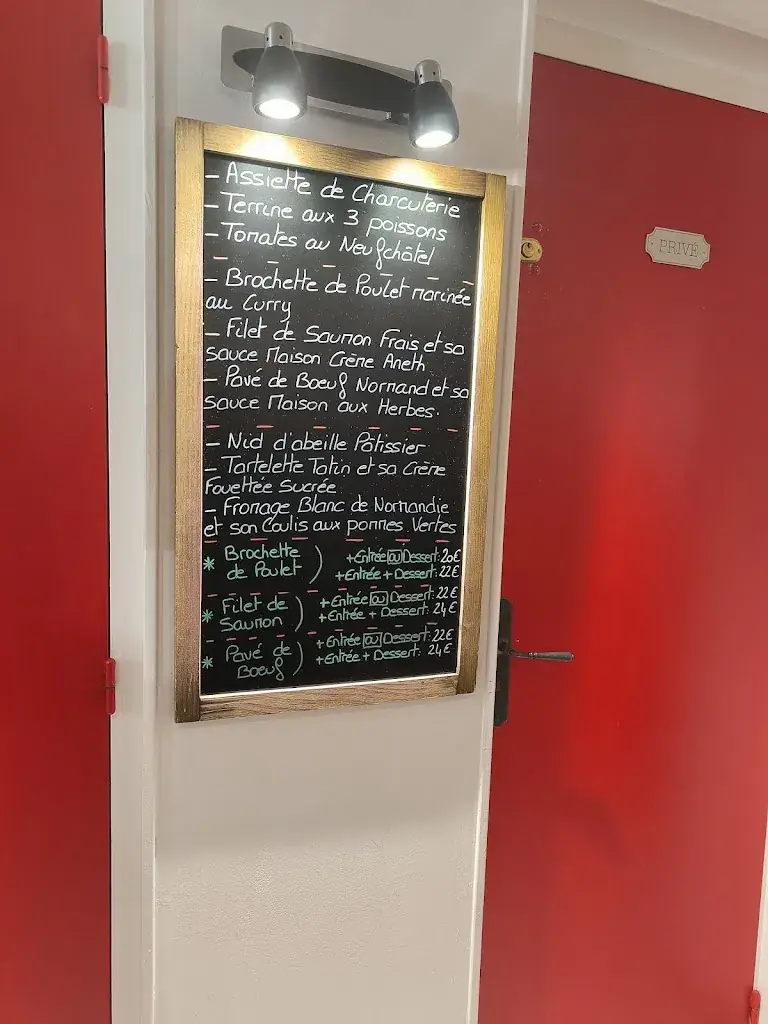 - Assiette de Charcuterie
- Terrine aux 3 poissons
- Tomates au Neufchâtel
- Brochette de Poulet marinée
au Curry
- Filet de Saumon Frais et sa
sauce Maison Crème Aneth
- Pavé de Boeuf Normand et sa
sauce Maison aux Herbes.
- Nid d'abeille Pâtissier
- Tartelette Tatin et sa Crème
Fouettée Sucrée
- Fromage Blanc de Normandie
et son Coulis aux pommes Vertes
* Brochette de Poulet )
+Entrée ou Dessert: 20€
+Entrée + Dessert: 22€
* Filet de Saumon )
+Entrée ou Dessert: 22€
+Entrée + Dessert: 24€
* Pavé de Boeuf )
+Entrée ou Dessert: 22€
+Entrée + Dessert: 24€
PRIVÉ